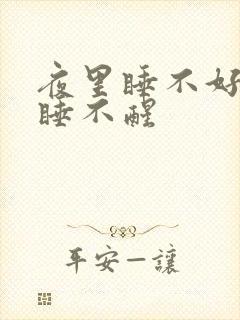 夜里睡不好
睡不醒
平安一讓